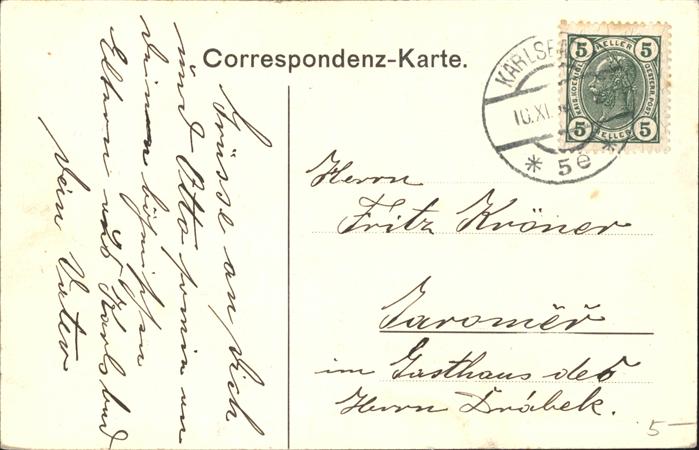 Correspondenz-Karte.
Grüsse an Dich
und Otto sowie an
Deine böhmischen
Eltern aus Karlsbad
Dein Vater
KARLSB
10.XI.
* 5e *
5 HELLER 5
KAIS. KOENIGL. OESTERR. POST
5 HELLER 5
Herrn
Fritz Kröner
Jaroměř
im Gasthaus des
Herrn Drábek.
5-